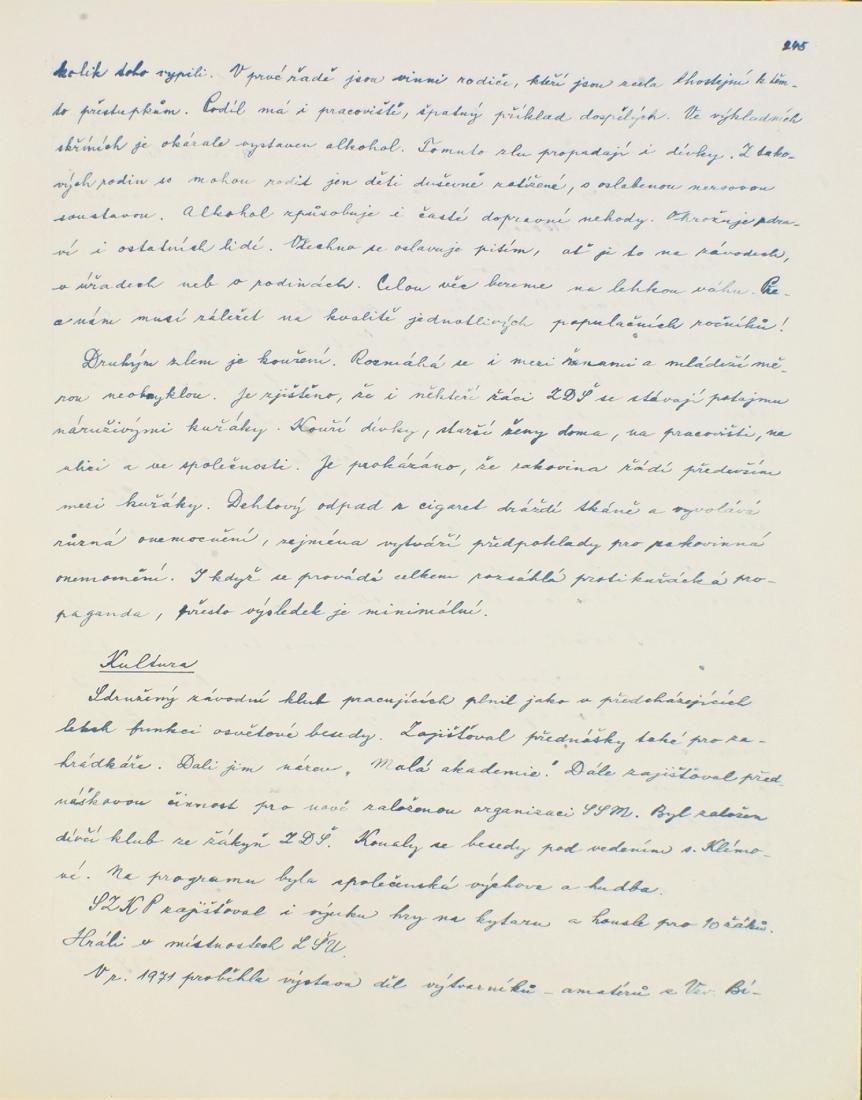 245
kolik toho vypili. V prvé řadě jsou vinni rodiče, kteří jsou zcela lhostejní k těm-
to přestupkům. Podíl má i pracoviště, špatný příklad dospělých. Ve výkladních
skříních je okázale vystaven alkohol. Tomuto zlu propadají i dívky. Z tako-
vých rodin se mohou rodit jen děti duševně zatížené, s oslabenou nervovou
soustavou. Alkohol způsobuje i časté dopravní nehody. Ohrožuje zdra-
ví i ostatních lidí. Všechno se oslavuje pitím, ať je to na závodech,
v úřadech neb v rodinách. Celou věc bereme na lehkou váhu.
a nám musí záležet na kvalitě jednotlivých populačních ročníků!
Druhým zlem je kouření. Rozmáhá se i mezi ženami a mládeží mě-
rou neobvyklou. Je zjištěno, že i někteří žáci ZDŠ se stávají potajmu
náruživými kuřáky. Kouří dívky, starší ženy doma, na pracovišti, na
ulici a ve společnosti. Je prokázáno, že rakovina řádí především
mezi kuřáky. Dehtový odpad z cigaret dráždí tkáně a vyvolává
různá onemocnění, zejména vytváří předpoklady pro rakovinná
onemocnění. I když se provádí celkem rozsáhlá protikuřácká pro-
paganda, přesto výsledek je minimální.
Kultura
Sdružený závodní klub pracujících plnil jako v předcházejících
letech funkci osvětové besedy. Zajišťoval přednášky také pro za-
hrádkáře. Dali jim název „Malá akademie." Dále zajišťoval před-
náškovou činnost pro nově založenou organizaci SSM. Byl založen
dívčí klub ze žákyň ZDŠ. Konaly se besedy pod vedením s. Klímo-
vé. Na programu byla společenská výchova a hudba.
SZKP zajišťoval i výuku hry na kytaru a housle pro 10 žáků.
Hráli v místnostech LŠU.
V r. 1971 proběhla výstava děl výtvarníků - amatérů z Vsv. Bí-